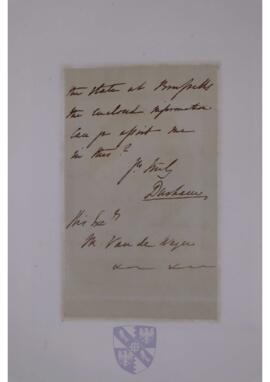 the state at Brussells
the enclosed information
Can you assist me
in this?
Yrs truly
Durham
His Exy
M. Van de Weyer